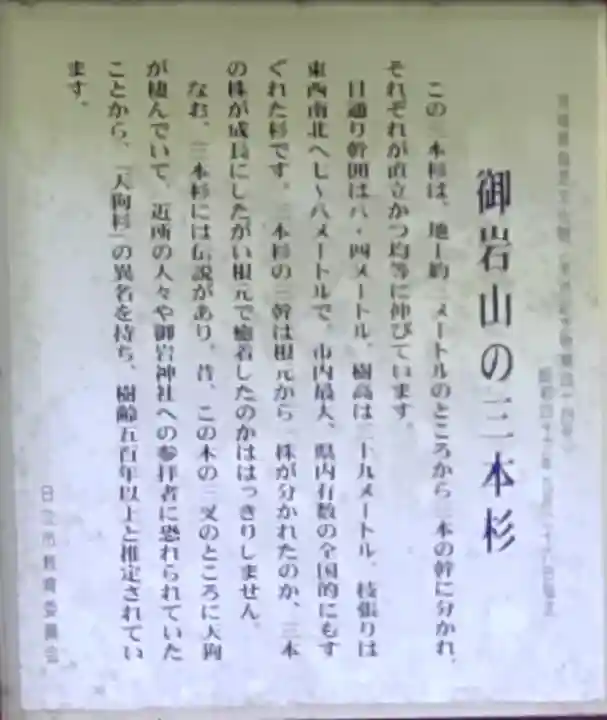 御岩山の三本杉
この三本杉は、地上約三メートルのところから三本の幹に分かれ、
それぞれが直立かつ均等に伸びています。
目通り幹囲は八・四メートル、樹高は三十九メートル、枝張りは
東西南北へ七〜八メートルで、市内最大、県内有数の全国的にもす
ぐれた杉です。三本杉の三幹は根元から一株が分かれたのか、三本
の株が成長にしたがい根元で癒着したのかははっきりしません。
なお、三本杉には伝説があり、昔、この木の三叉のところに天狗
が棲んでいて、近所の人々や御岩神社への参拝者に恐れられていた
ことから、「天狗杉」の異名を持ち、樹齢五百年以上と推定されてい
ます。
日立市教育委員会